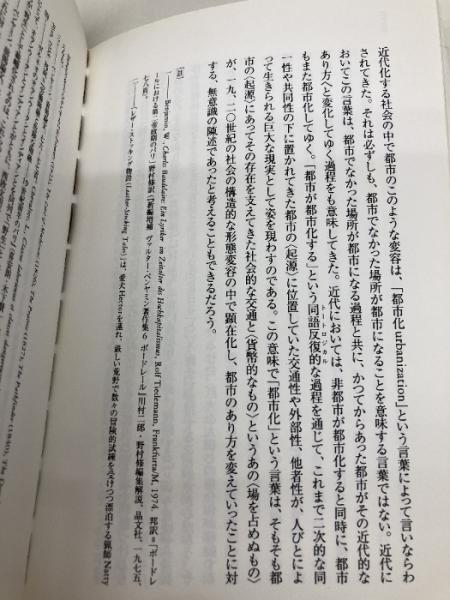 近代化する社会の中で都市のこのような変容は、「都市化 urbanization」という言葉によって言いならわ
されてきた。それは必ずしも、都市でなかった場所が都市になることを意味する言葉ではない。近代に
おいてこの言葉は、都市でなかった場所が都市になる過程と共に、かつてからあった都市がその近代的な
あり方へと変化してゆく過程をも意味してきた。近代においては、非都市が都市化すると同時に、都市
もまた都市化してゆく。「都市が都市化する」という同語反復的な過程を通じて、これまで二次的な同
トートロジカル
一性や共同性の下に置かれてきた都市の〈起源〉に位置していた交通性や外部性、他者性が、人びとによ
って生きられる巨大な現実として姿を現わすのである。この意味で「都市化」という言葉は、そもそも都
市の〈起源〉にあってその存在を支えてきた社会的な交通と〈貨幣的なもの〉というあの〈場を占めぬもの〉
が、一九、二〇世紀の社会の構造的な形態変容の中で顕在化し、都市のあり方を変えていったことに対
する、無意識の陳述であったと考えることもできるだろう。
[註]
Benjamin, W., Charles Baudelaire: Ein Lyriker im Zeitalter des Hochkapitalismus, Rolf Tiedemann, Frankfurta/M, 1974. 邦訳=「ボードレ
ールにおける第二帝政期のパリ」野村修訳『新編増補 ヴァルター・ベンヤミン著作集6 ボードレール』川村二郎・野村修編集解説、晶文社、一九七五、
七八頁。
『レザー・ストッキング物語 (Leather-Stocking Tales)』は、愛犬 Hector を連れ、厳しい荒野で数々の冒険的試練を受けつつ漂泊する猟師 Natty